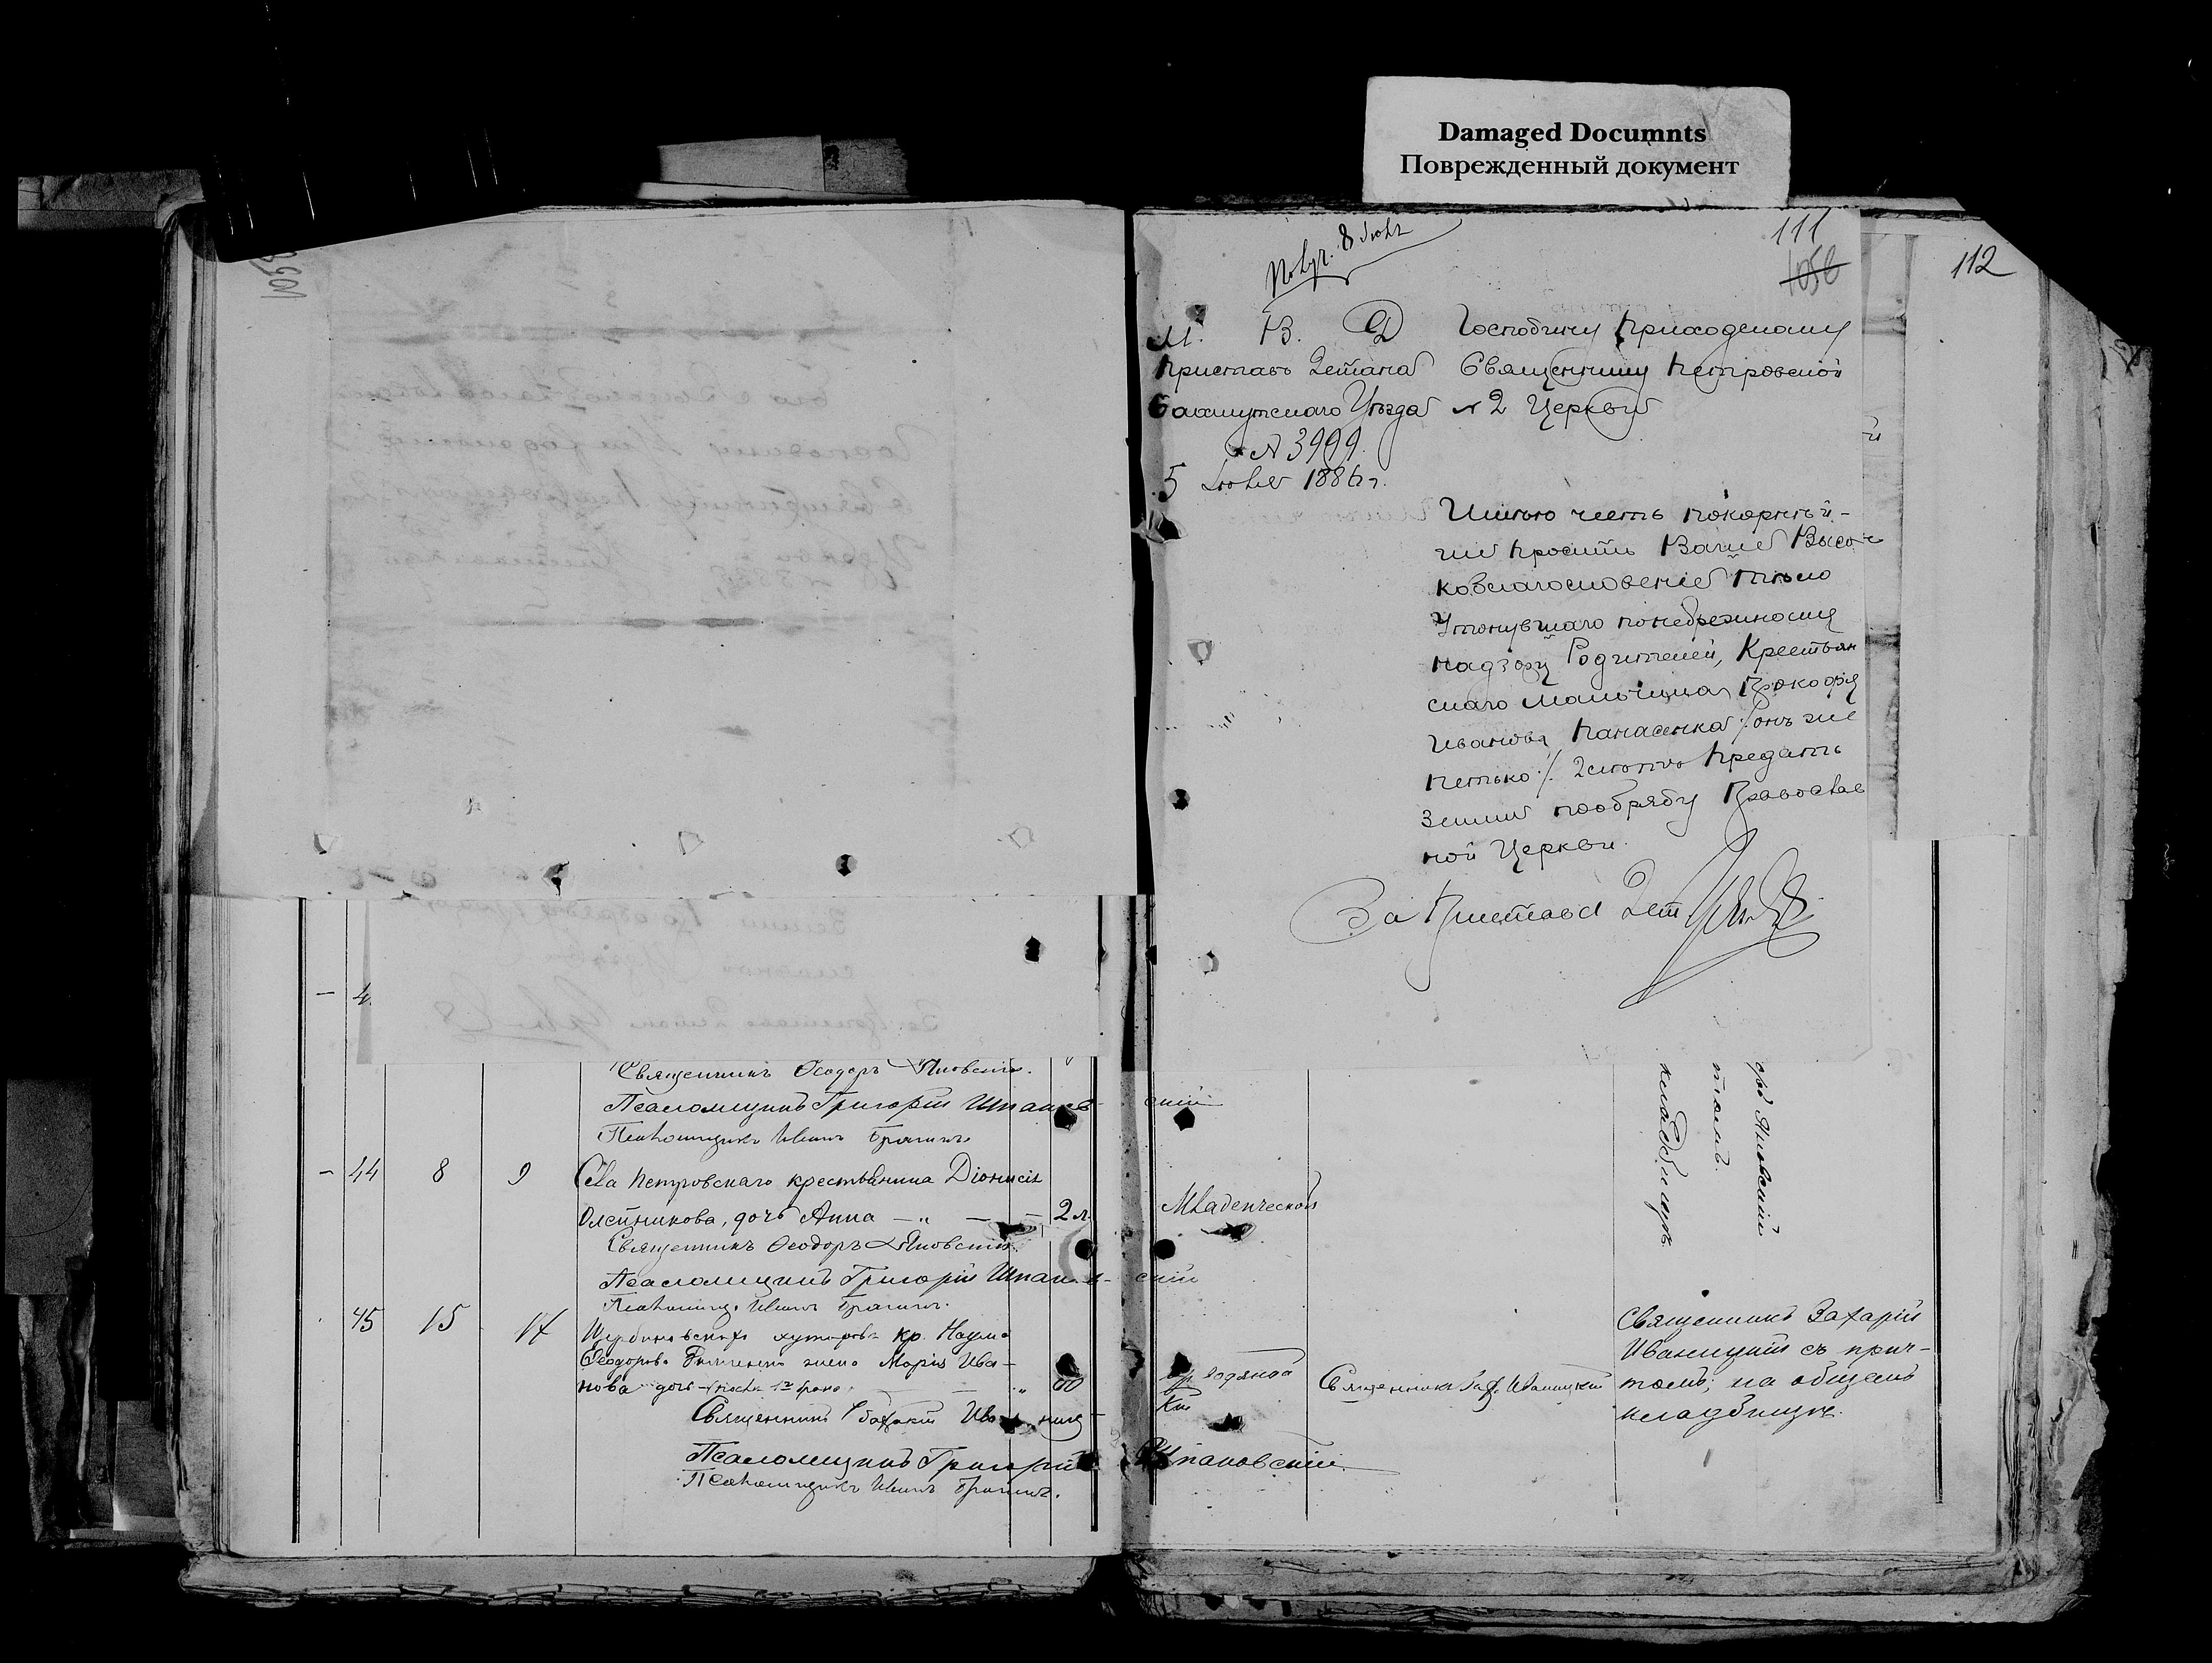 Damaged Documnts
Поврежденный документ
111
1058
112
Получ. 8 Іюля
М. В. Д.
Приставъ 2 стана
Бахмутскаго Уѣзда
№ 3999.
5 Іюля 1886 г.
Господину Приходскому
Священнику Петровской
№ 2 Церкви
Имѣю честь покорнѣй-
ше просить Ваше Высо
коблагословеніе тѣло
Утонувшаго по небрежному
надзору Родителей, Крестьян
скаго мальчика Прокофія
Иванова Панасенка /: онъ же
Петько :/ предать
Земли по обряду Православ
ной Церкви.
За Пристава 2 ст.
4
Священникъ Ѳеодоръ Яновскій.
Псаломщикъ Григорій Шпановскій
Псаломщикъ Иванъ Брагинъ
44 8 9 Села Петровскаго крестьянина Діонисія
Олейникова, дочь Анна — „ — 2 л. Младенческой
Священникъ Ѳеодоръ Яновскій.
Псаломщикъ Григорій Шпановскій
Псаломщ. Иванъ Брагинъ.
45 15 17 Щербиновскихъ хуторовъ кр. Наума
Ѳеодорова жена Марія Ива-
нова 60
водяной
Священникъ Зах. Иваницкій
Священникъ Захарій
Иваницкій съ прич-
томъ; на общемъ
кладбищѣ.
Священникъ Захарій Иваницкій
Псаломщикъ Григорій Шпановскій.
Псаломщикъ Иванъ Брагинъ.
оръ Яновскій
томъ.
кладбищѣ.